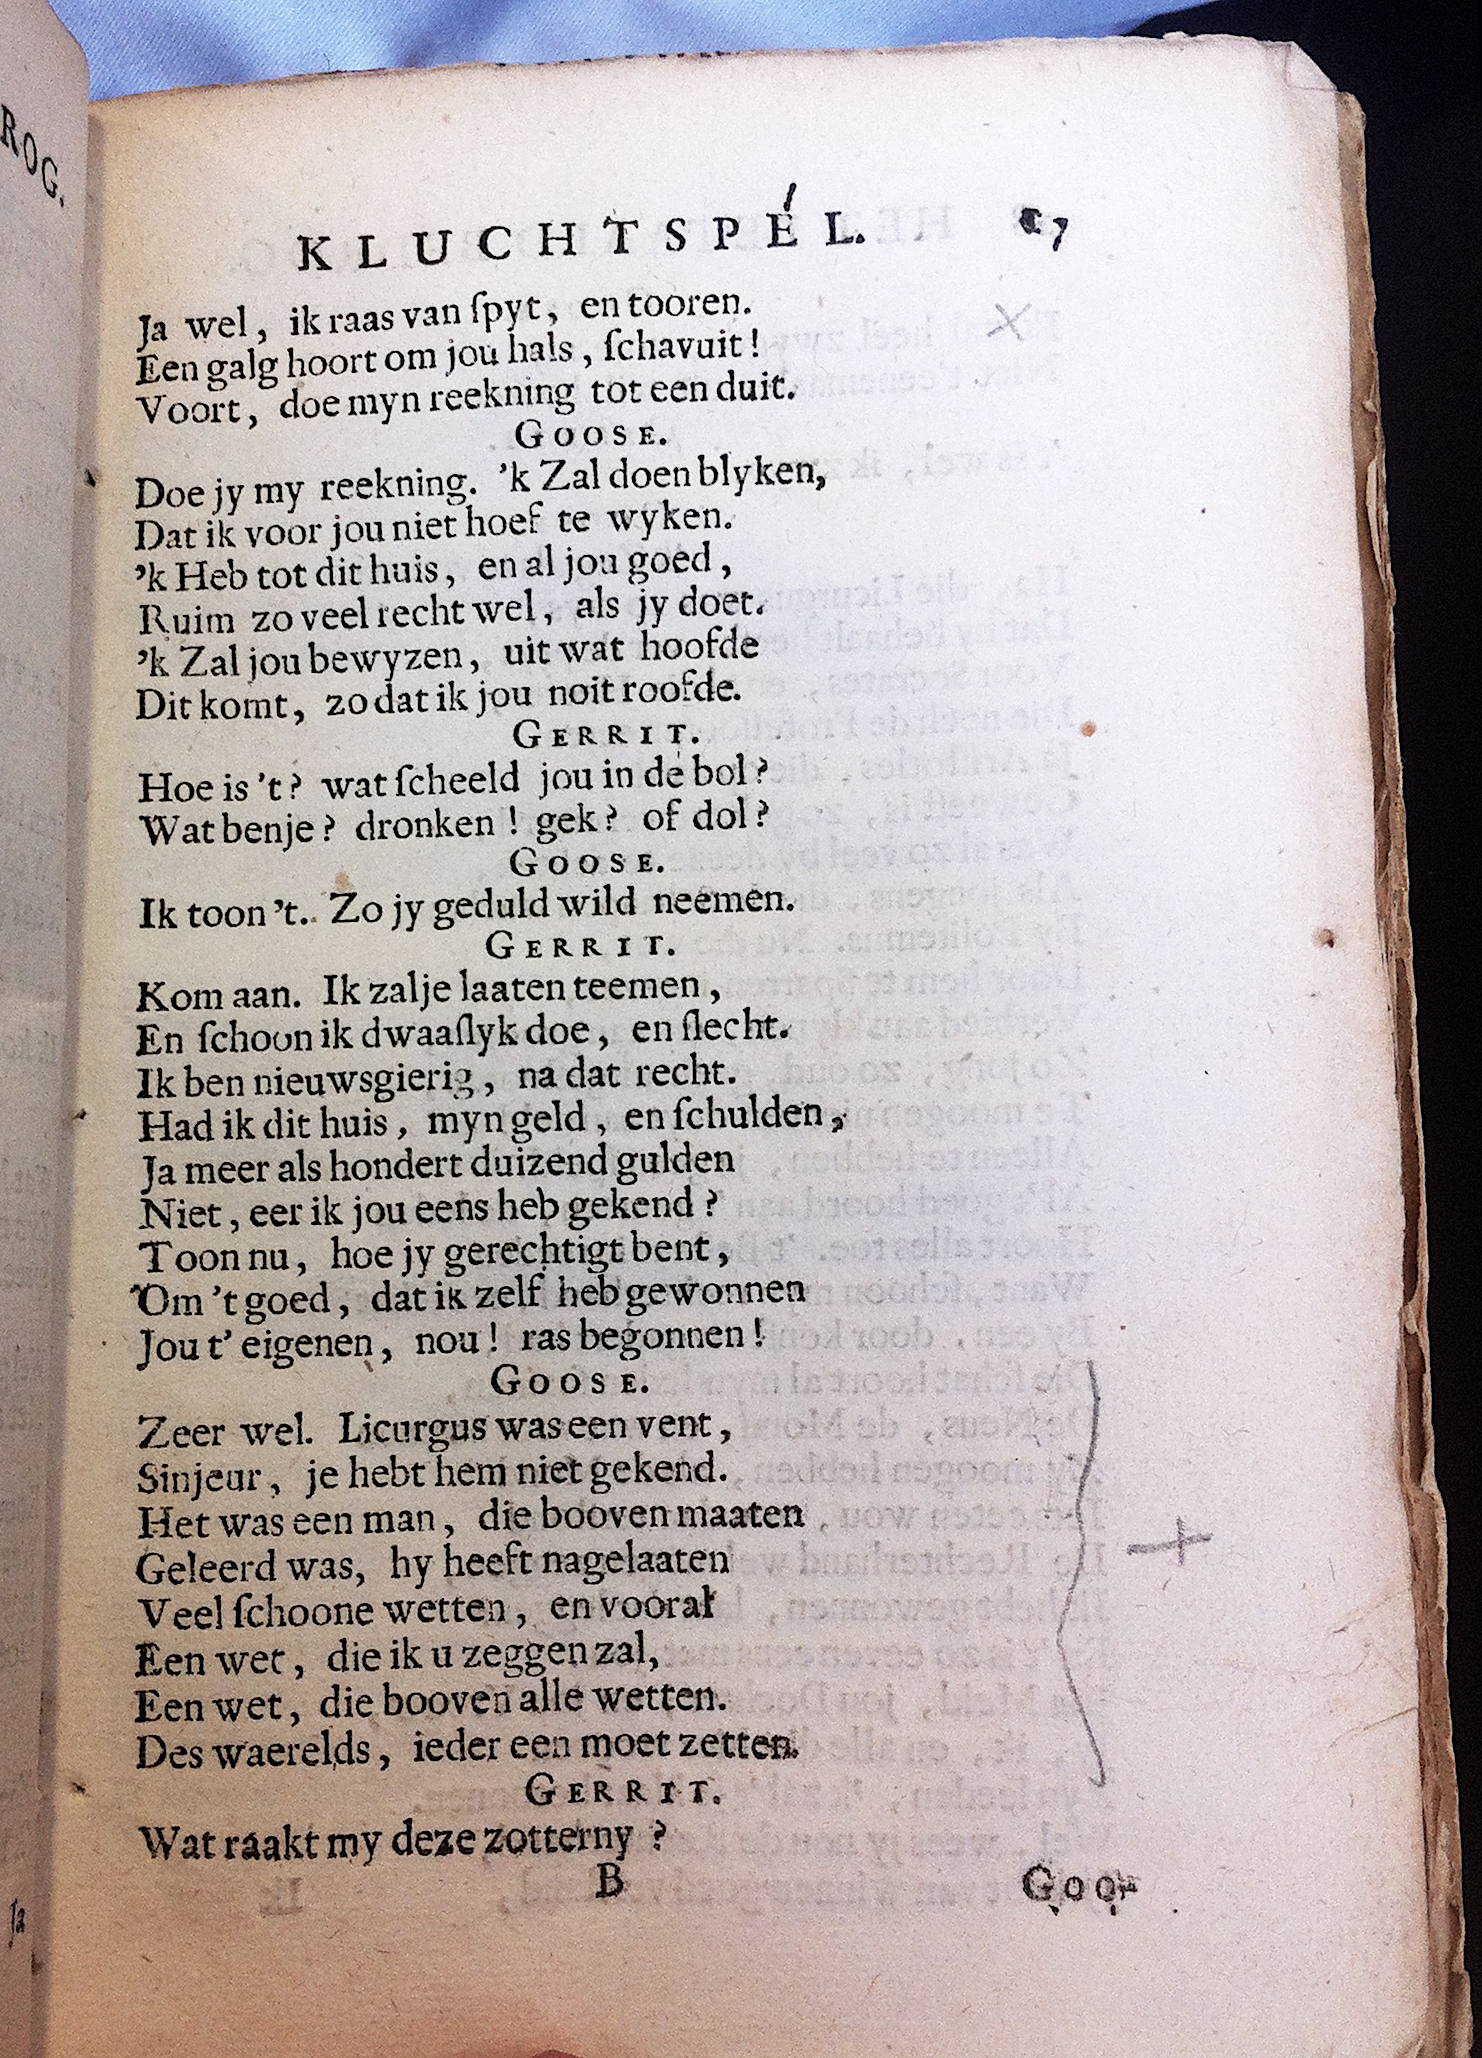 ROG.
KLUCHTSPÉL. 17
Ja wel, ik raas van ſpyt, en tooren.
Een galg hoort om jou hals, ſchavuit!
Voort, doe myn reekning tot een duit.
GOOSE.
Doe jy my reekning. 'k Zal doen blyken,
Dat ik voor jou niet hoef te wyken.
'k Heb tot dit huis, en al jou goed,
Ruim zo veel recht wel, als jy doet.
'k Zal jou bewyzen, uit wat hoofde
Dit komt, zo dat ik jou noit roofde.
GERRIT.
Hoe is 't? wat ſcheeld jou in de bol?
Wat benje? dronken! gek? of dol?
GOOSE.
Ik toon 't. Zo jy geduld wild neemen.
GERRIT.
Kom aan. Ik zalje laaten teemen,
En ſchoon ik dwaaſlyk doe, en ſlecht.
Ik ben nieuwsgierig, na dat recht.
Had ik dit huis, myn geld, en ſchulden,
Ja meer als hondert duizend gulden
Niet, eer ik jou eens heb gekend?
Toon nu, hoe jy gerechtigt bent,
Om 't goed, dat ik zelf heb gewonnen
Jou t' eigenen, nou! ras begonnen!
GOOSE.
Zeer wel. Licurgus was een vent,
Sinjeur, je hebt hem niet gekend.
Het was een man, die booven maaten
Geleerd was, hy heeft nagelaaten
Veel ſchoone wetten, en vooral
Een wet, die ik u zeggen zal,
Een wet, die booven alle wetten.
Des waerelds, ieder een moet zetten.
GERRIT.
Wat raakt my deze zotterny?
B Goo-
Ja